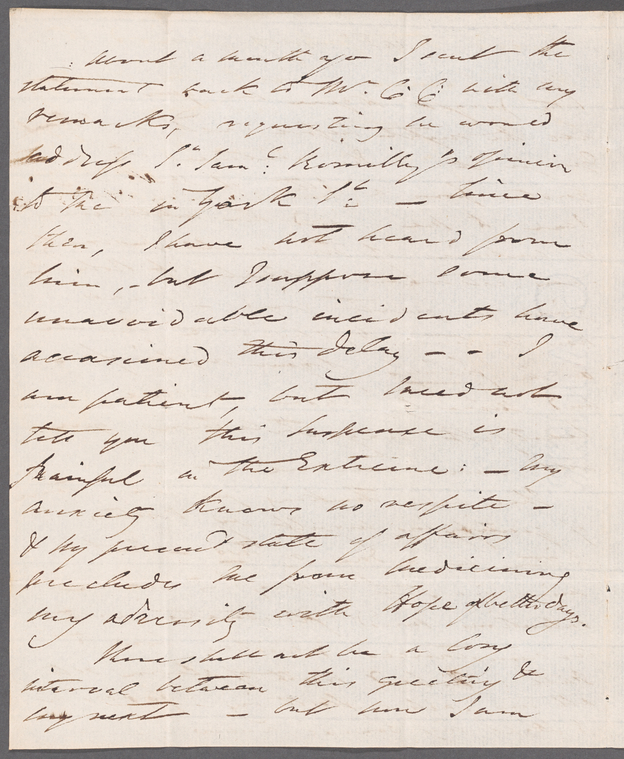 about a month ago I sent the
statement back to Mr. C C with my
remarks, requesting he would
address Sr. Saml. Romilly's opinion
to the in York St. – Since
then, I have not heard from
him, – but I suppose some
unavoidable incidents have
occasioned this delay – – I
am patient, but need not
tell you this suspense is
painful in the Extreme: – my
anxiety knows no respite –
& my present state of affairs
precludes me from medicining
my adversity with Hope of better days.
There shall not be a long
interval between this greeting &
my next – but now I am